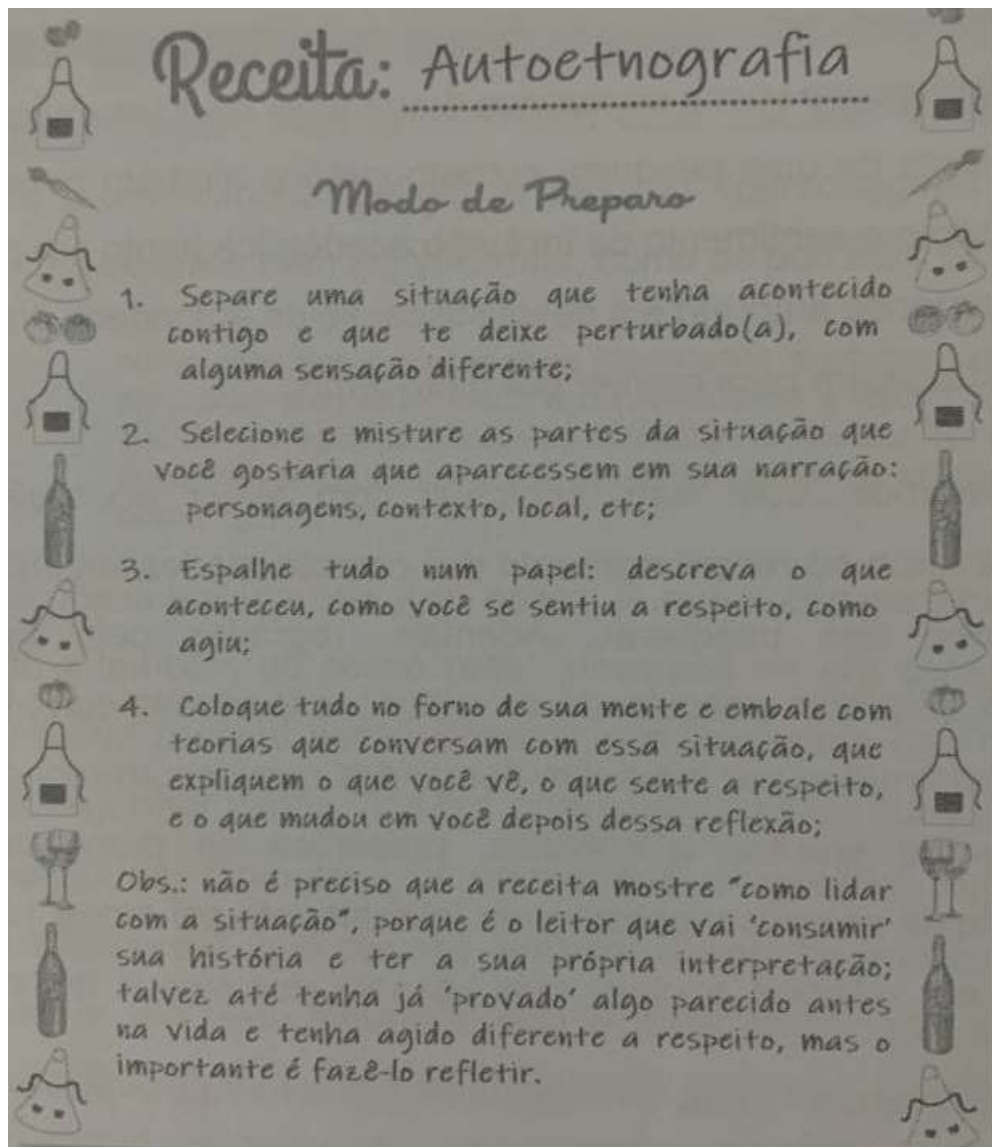 Receita: Autoetnografia
Modo de Preparo
1. Separe uma situação que tenha acontecido
contigo e que te deixe perturbado(a), com
alguma sensação diferente;
2. Selecione e misture as partes da situação que
você gostaria que aparecessem em sua narração:
personagens, contexto, local, etc;
3. Espalhe tudo num papel: descreva o que
aconteceu, como você se sentiu a respeito, como
agiu;
4. Coloque tudo no forno de sua mente e embale com
teorias que conversam com essa situação, que
expliquem o que você vê, o que sente a respeito,
e o que mudou em você depois dessa reflexão;
Obs.: não é preciso que a receita mostre "como lidar
com a situação", porque é o leitor que vai 'consumir'
sua história e ter a sua própria interpretação;
talvez até tenha já 'provado' algo parecido antes
na vida e tenha agido diferente a respeito, mas o
importante é fazê-lo refletir.